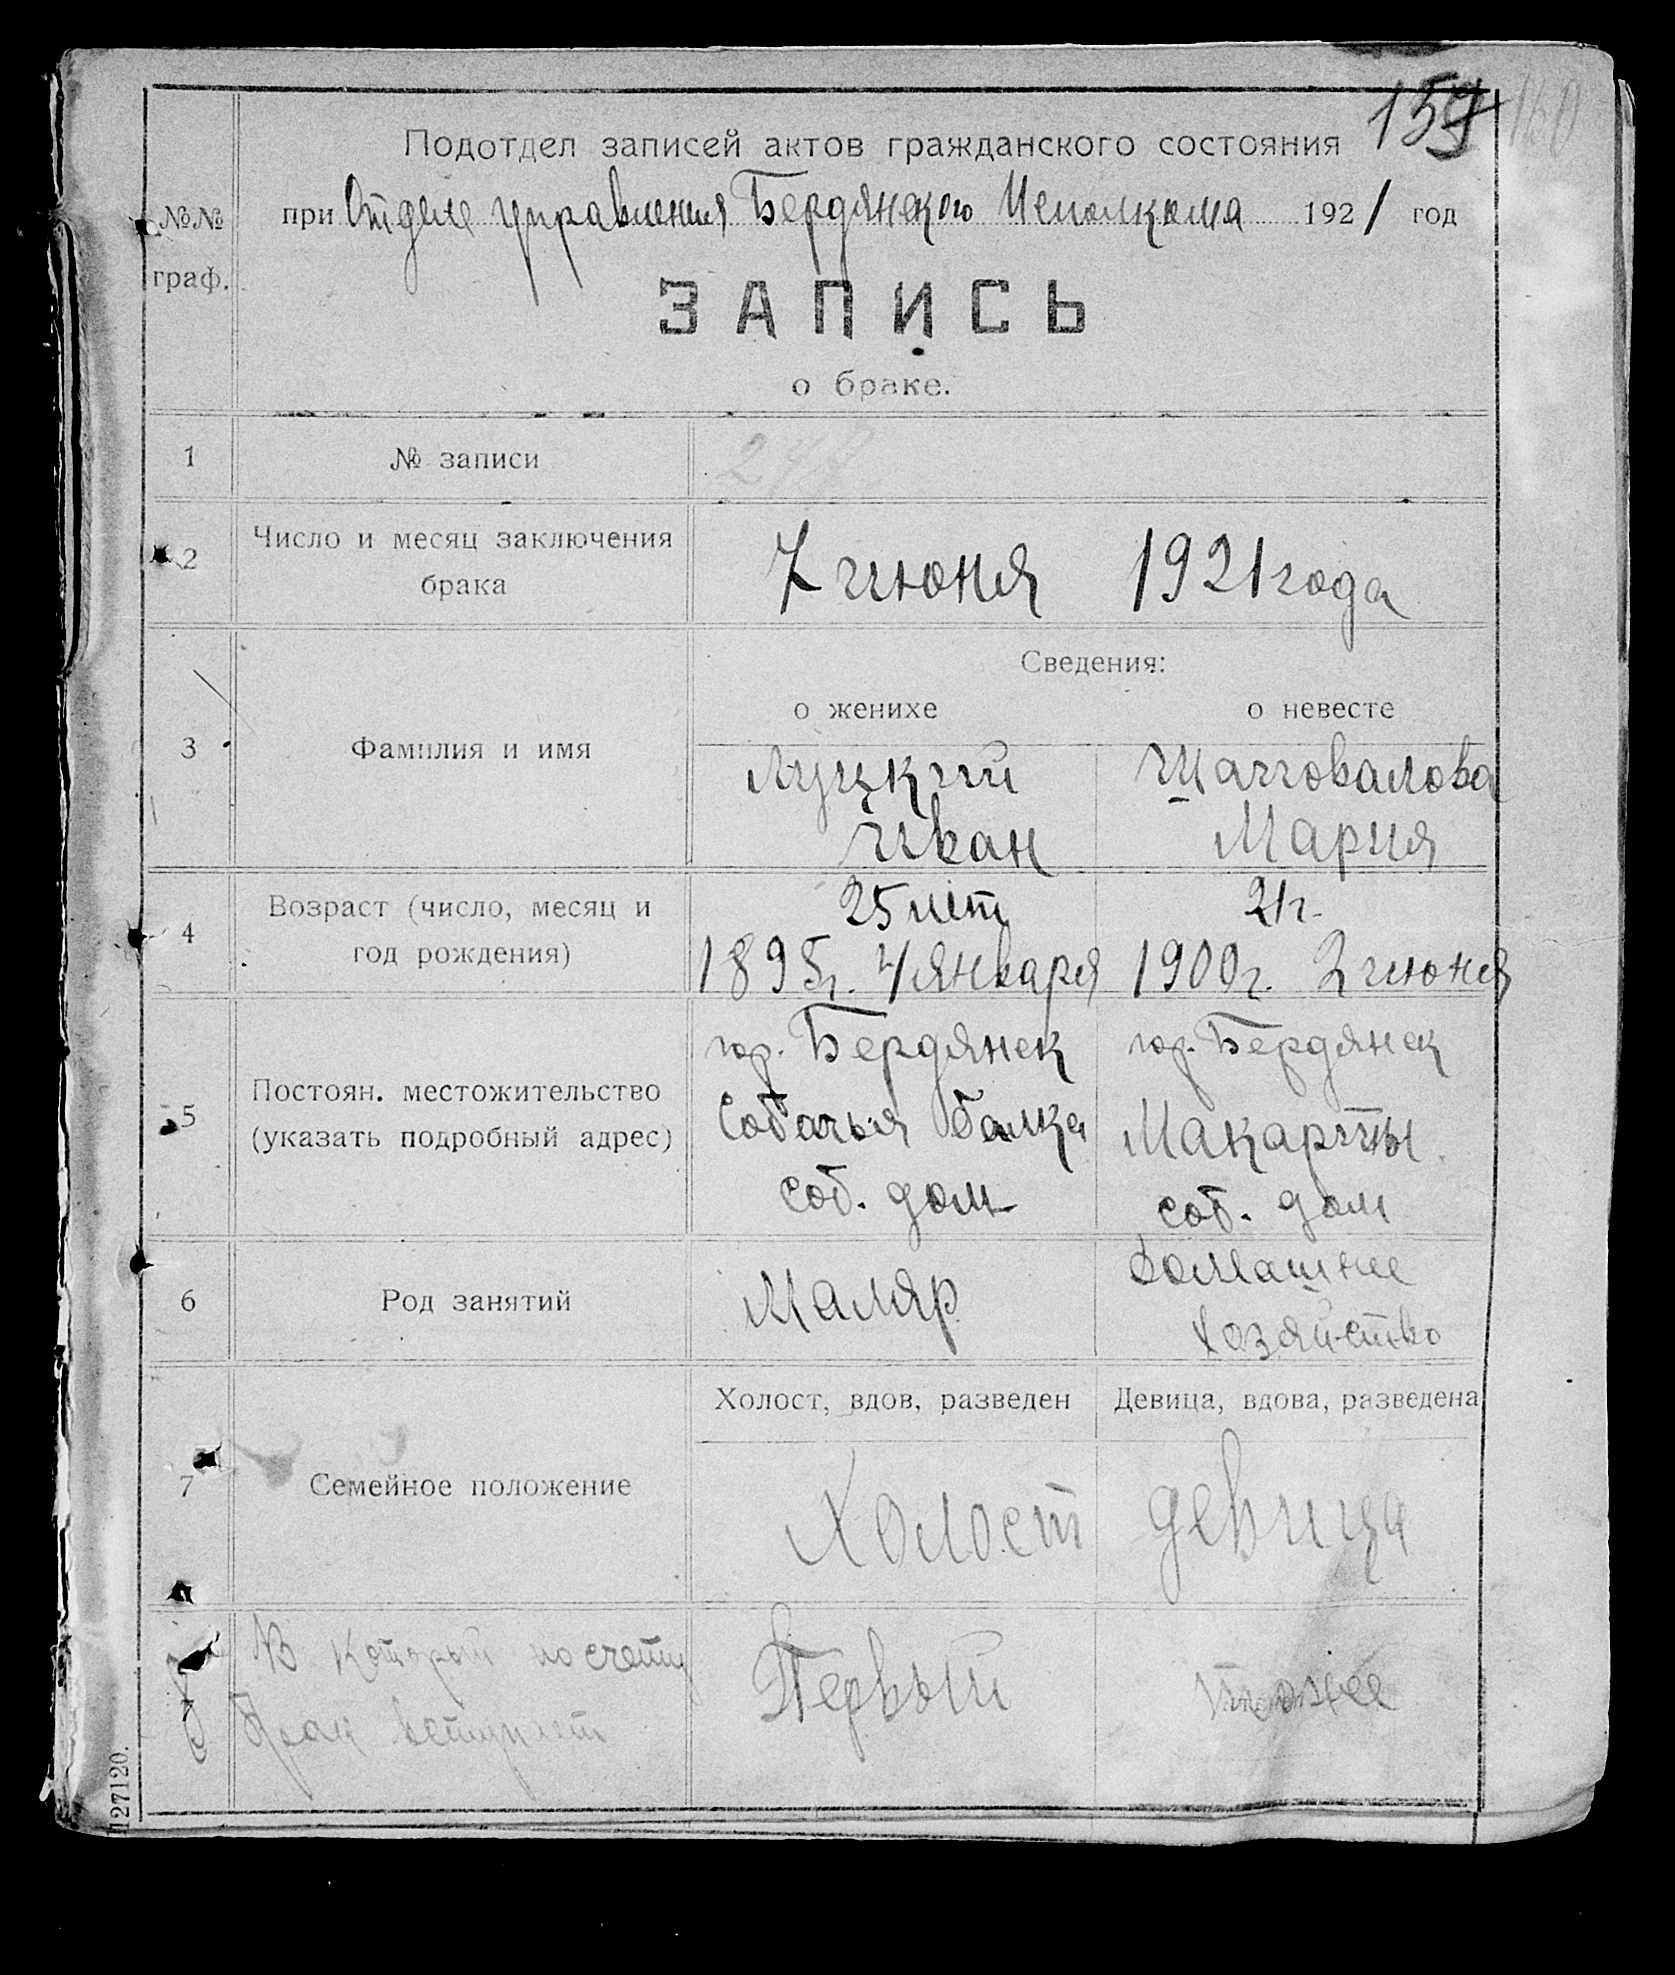 159 160
Подотдел записей актов гражданского состояния
при Отделе управления Бердянского Исполкома 1921 год
№№
граф.
ЗАПИСЬ
о браке.
1 № записи
2 Число и месяц заключения
брака
7 июня 1921 года
Сведения:
о женихе о невесте
3 Фамилия и имя
Луцкий Шаповалова
Иван Мария
4 Возраст (число, месяц и
год рождения)
25 лет 21 г.
1895 г. 4 января 1900 г. 2 июня
5 Постоян. местожительство
(указать подробный адрес)
гор. Бердянск гор. Бердянск
Собачья балка Макорты
соб. дом соб. дом
6 Род занятий
Маляр Домашнее
хозяйство
Холост, вдов, разведен Девица, вдова, разведена
7 Семейное положение
Холост девица
В который по счету
брак вступает
Первый тоже
127120.